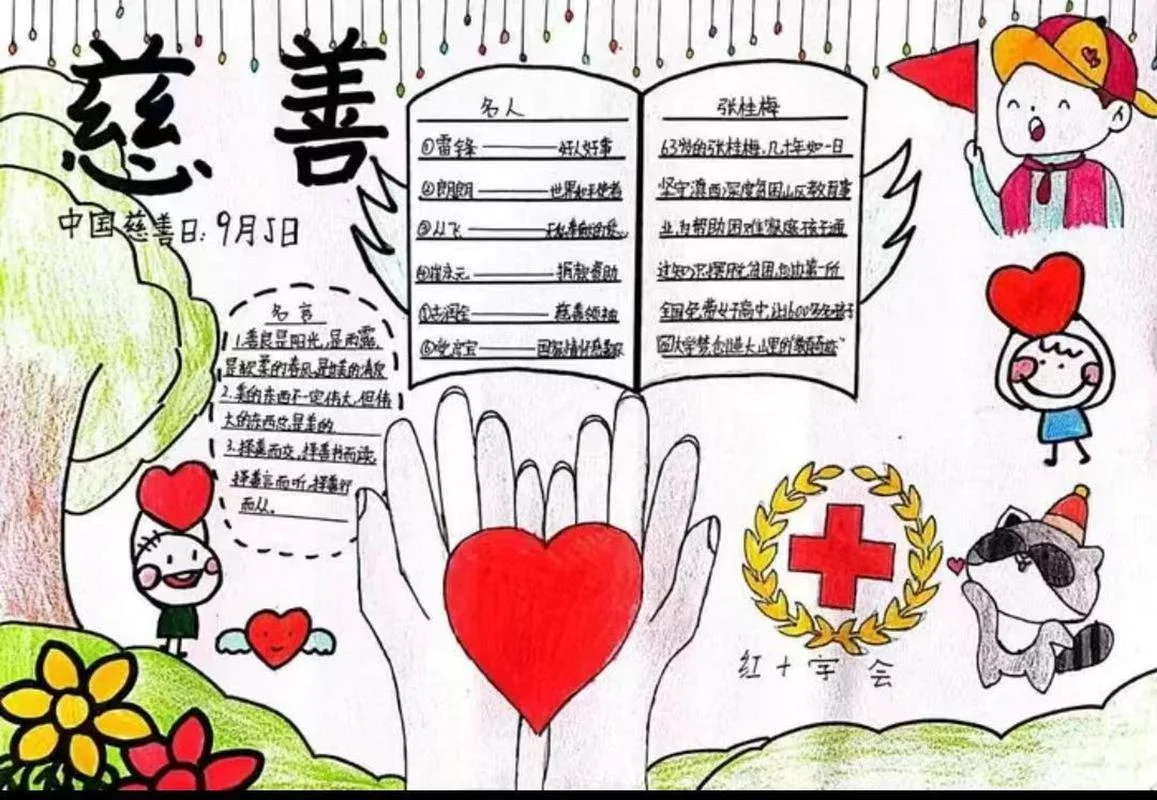 慈善
中国慈善日:9月5日
名言
1.善良是阳光,是雨露,
是轻柔的春风,是 的清泉
2.美的东西不一定伟大,但伟
大的东西总是美的
3.择善而交,择善书而读,
择善言而听,择善行
而从。
名人
①雷锋——好人好事
②郎朗——世界和平使者
③从飞——
④崔永元——捐款资助
⑤ ——慈善领袖
⑥ ——国家情怀慈善家
张桂梅
63岁的张桂梅,几十年如一日
坚守滇西深度贫困山区教育事
业,为帮助困难家庭孩子通
过知识摆脱贫困,创办第一所
全国免费女子高中,让1600多名孩子
圆大学梦,创造大山里的“教育奇迹”
红十字会